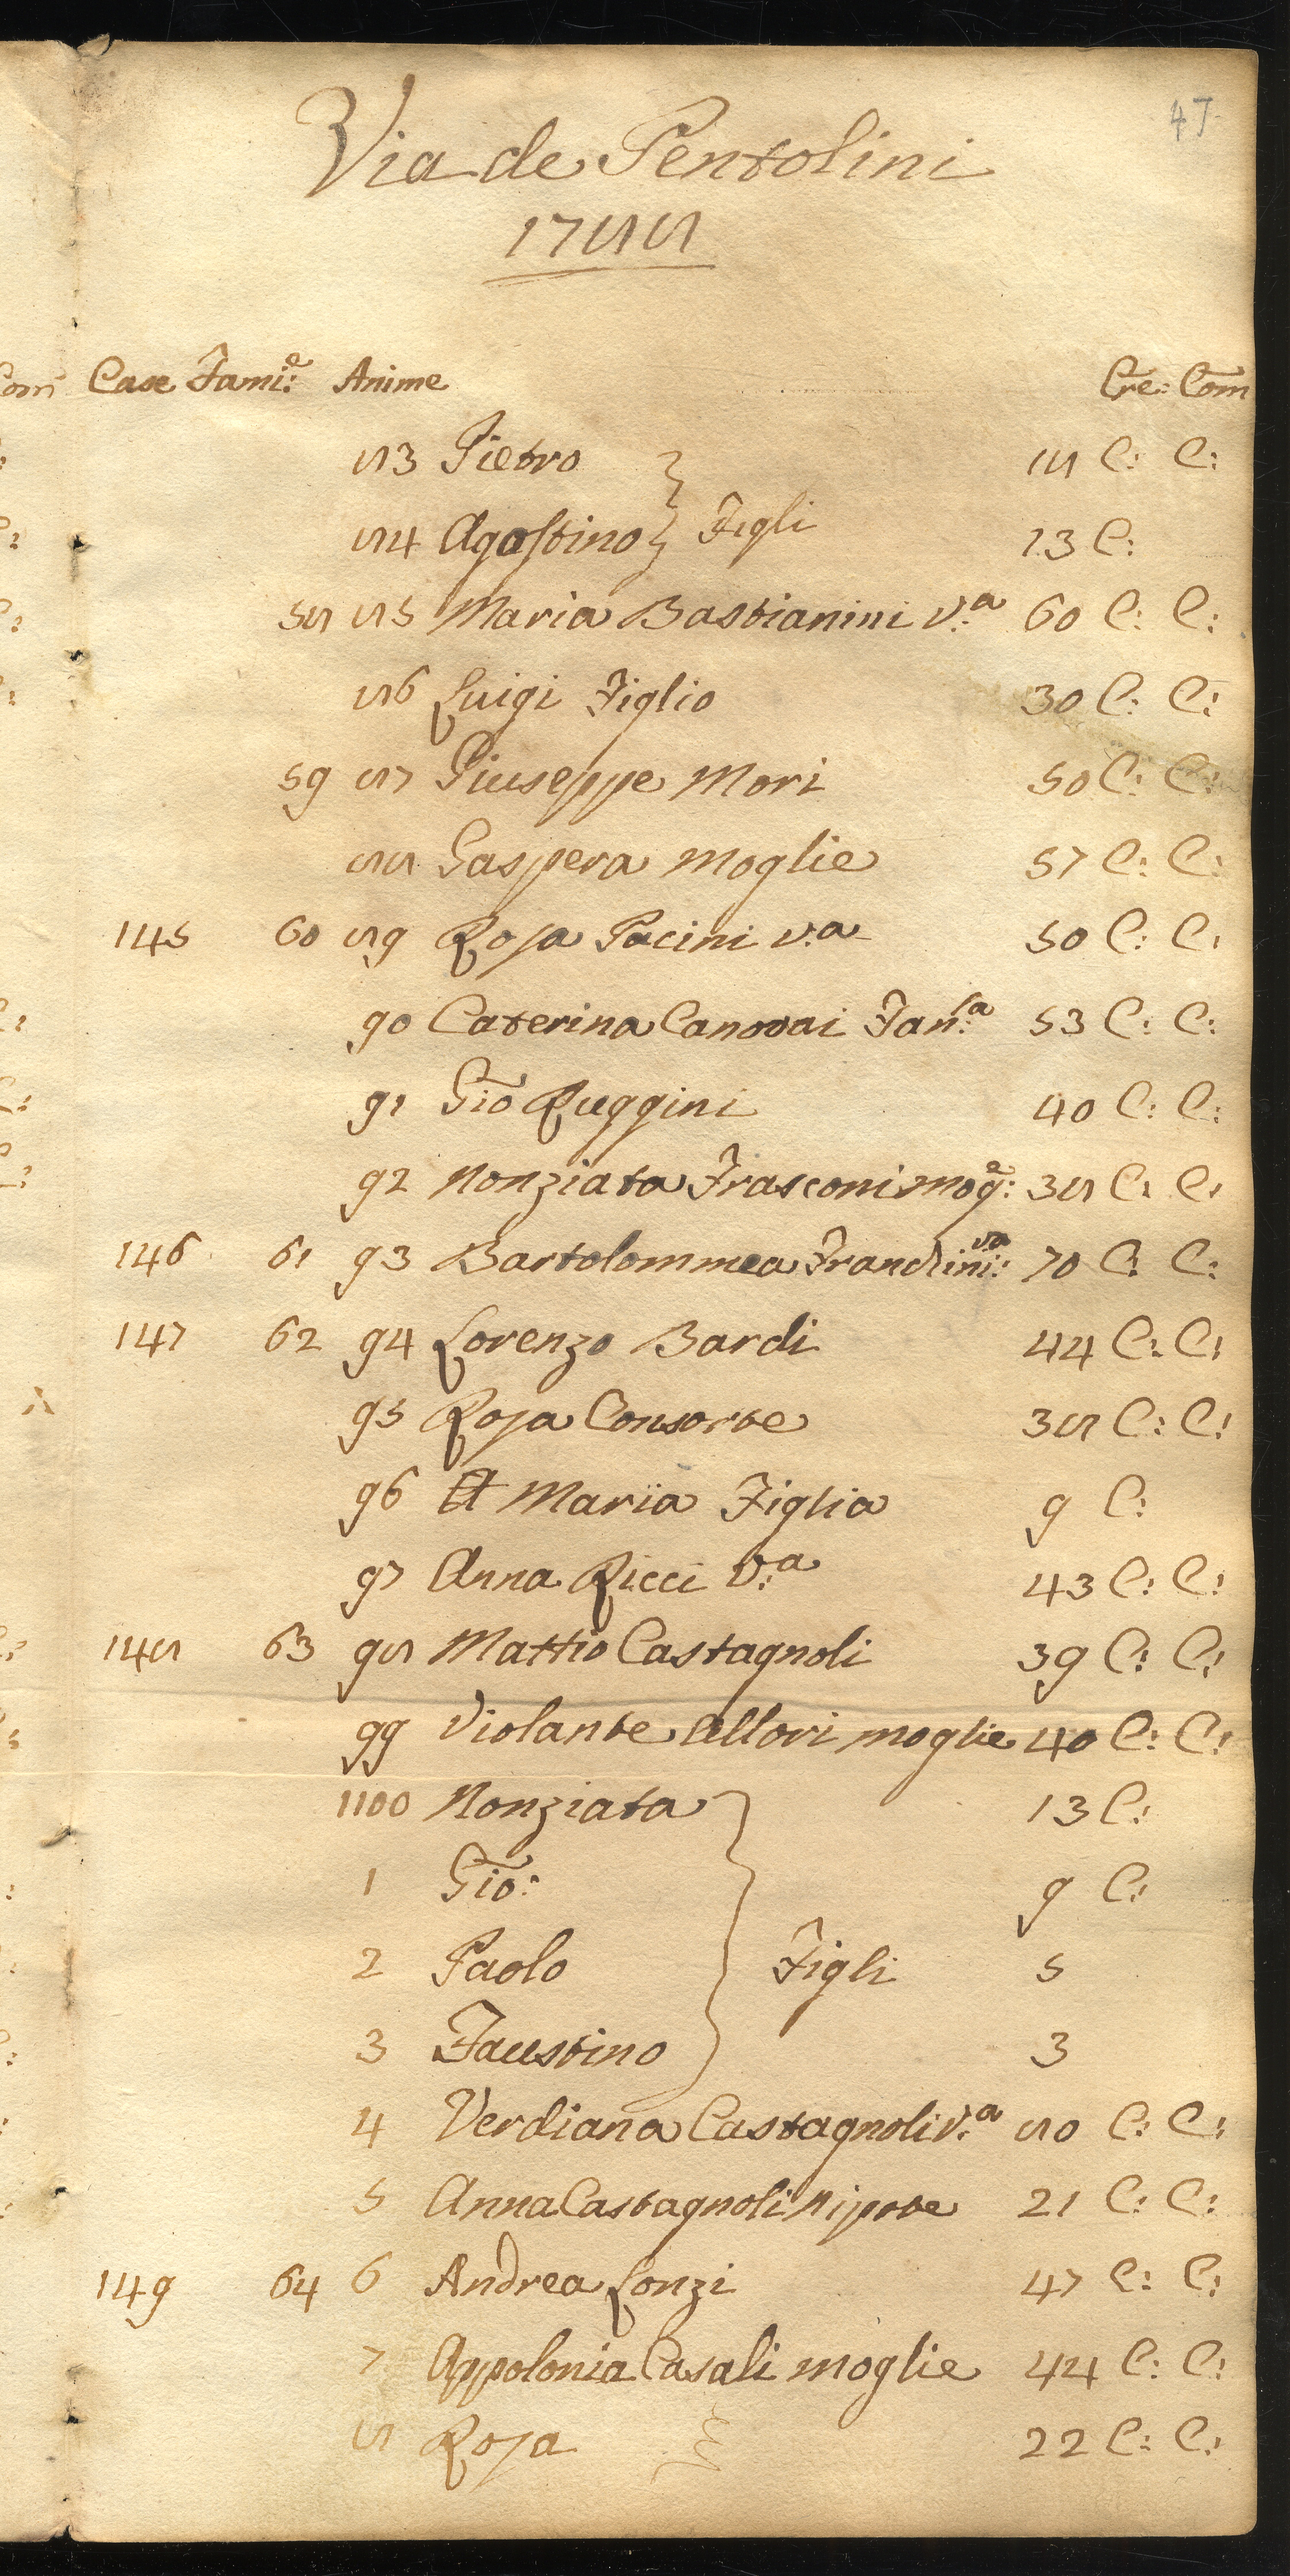 47
Via de Pentolini
1788
Case Fami:e Anime Cre: Com
83 Pietro 18 C: C:
84 Agostino Figli 13 C:
58 85 Maria Bastianini v:a 60 C: C:
86 Luigi Figlio 30 C: C:
59 87 Giuseppe Mori 50 C: C:
88 Gaspera moglie 57 C: C:
145 60 89 Rosa Pacini v:a 50 C: C:
90 Caterina Canovai Fan:ca 53 C: C:
91 Gio Ruggini 40 C: C:
92 Nonziata Frasconi mog:e 38 C: C:
146 61 93 Bartolommea Franchini va: 70 C: C:
147 62 94 Lorenzo Bardi 44 C: C:
95 Rosa Consorte 38 C: C:
96 A Maria Figlia 9 C:
97 Anna Ricci v:a 43 C: C:
148 63 98 Mattio Castagnoli 39 C: C:
99 Violante Allori moglie 40 C: C:
1100 Nonziata 13 C:
1 Gio: 9 C:
2 Paolo Figli 5
3 Faustino 3
4 Verdiana Castagnoli v:a 80 C: C:
5 Anna Castagnoli Nipote 21 C: C:
149 64 6 Andrea Lonzi 47 C: C:
7 Appolonia Casali moglie 44 C: C:
8 Rosa 22 C: C: